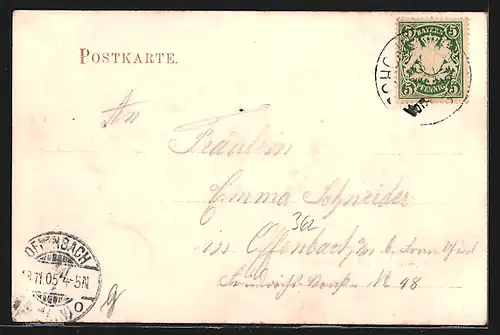 BAYERN
5 5
PFENNIG
5 5
POSTKARTE.
An
Fräulein
Emma Schneider
362
in Offenbach a/m b. Frankfurt
Straße № 48
OFFENBACH
11 05 4-5N